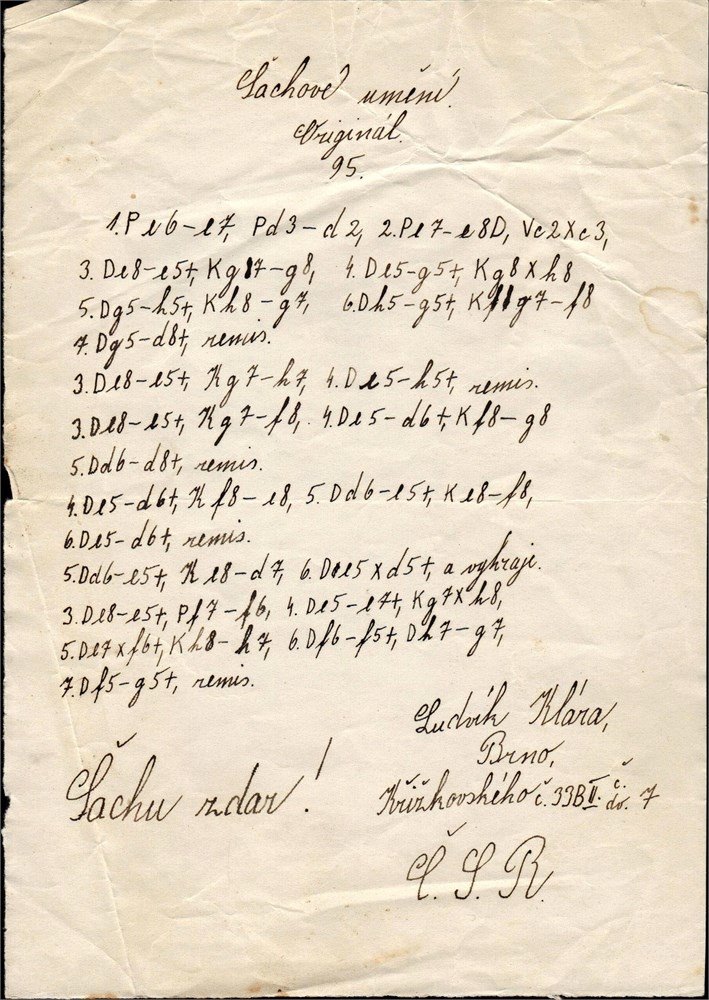 Šachové umění.
Originál.
95.
1. Pe6-e7, Pd3-d2, 2. Pe7-e8D, Vc2Xc3,
3. De8-e5+, Kg7-g8, 4. De5-g5+, Kg8Xh8
5. Dg5-h5+, Kh8-g7, 6. Dh5-g5+, Kg7-f8
7. Dg5-d8+, remis.
3. De8-e5+, Kg7-h7, 4. De5-h5+, remis.
3. De8-e5+, Kg7-f8, 4. De5-d6+, Kf8-g8
5. Dd6-d8+, remis.
4. De5-d6+, Kf8-e8, 5. Dd6-e5+, Ke8-f8,
6. De5-d6+, remis.
5. Dd6-e5+, Ke8-d7, 6. De5xd5+, a vyhraje.
3. De8-e5+, Pf7-f6, 4. De5-e7+, Kg7Xh8,
5. De7xf6+, Kh8-h7, 6. Df6-f5+, Dh7-g7,
7. Df5-g5+, remis.
Ludvík Klára,
Brno,
Šachu zdar!
Křížkovského č. 33B II. č. dv. 7
Č. S. R.